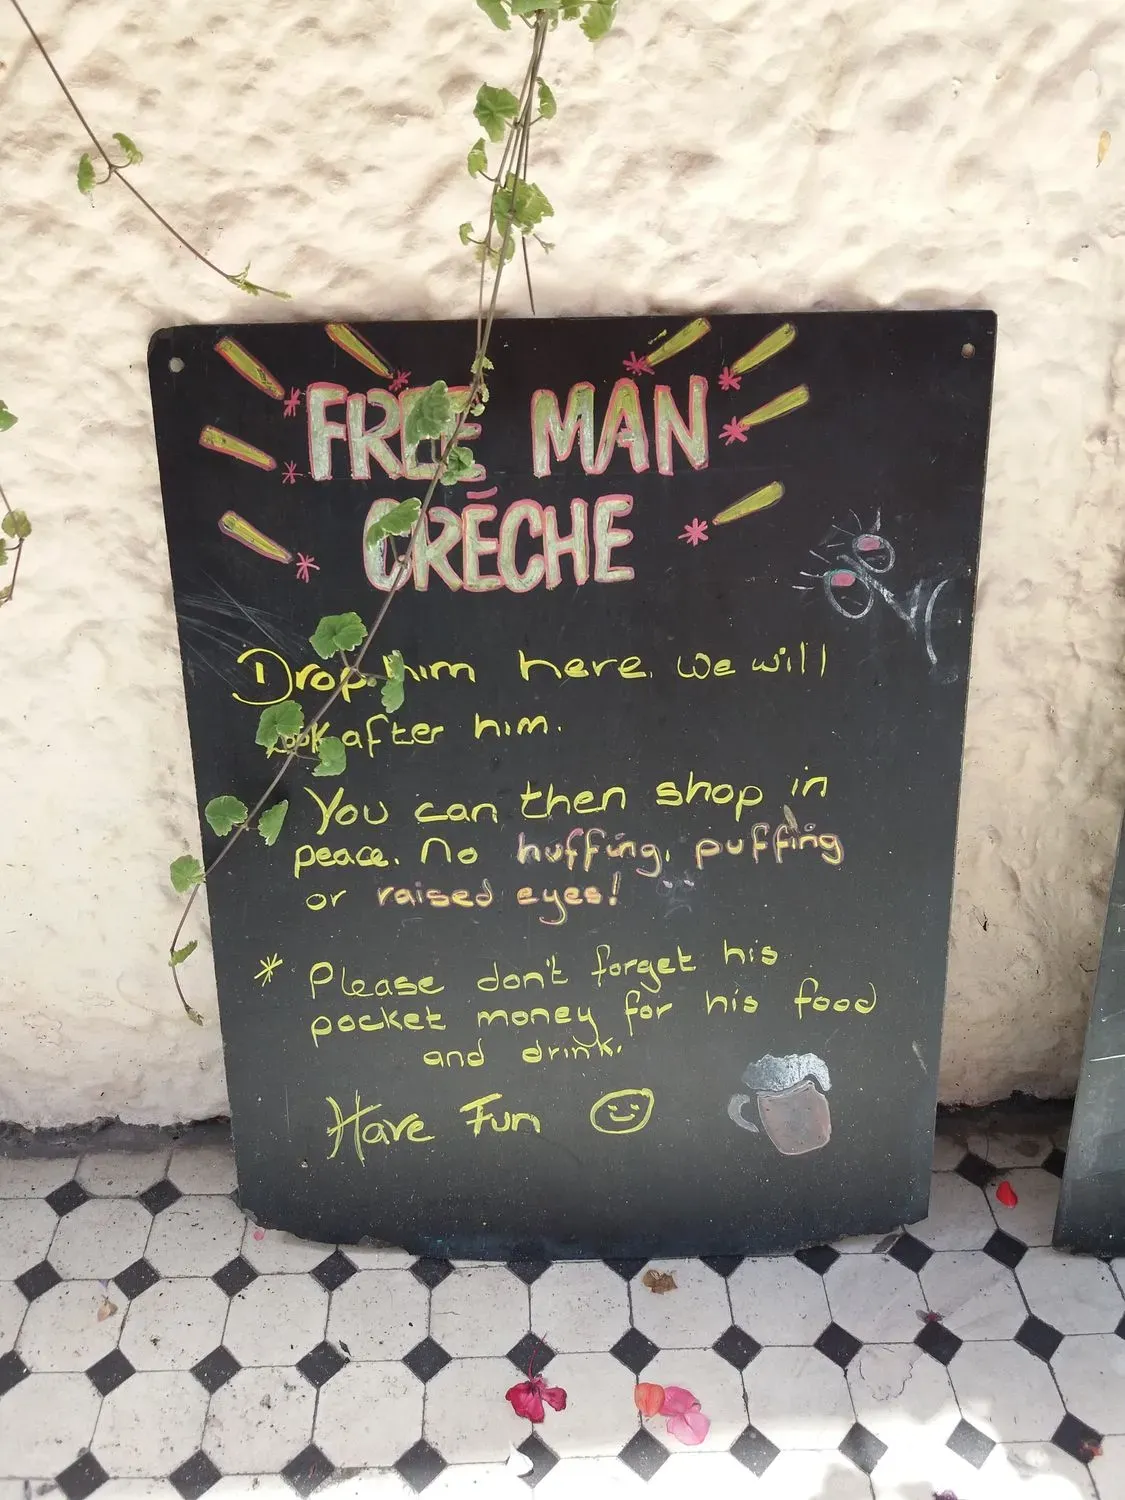 FREE MAN
CRĒCHE
Drop him here. We will
look after him.
You can then shop in
peace. No huffing, puffing
or raised eyes!
* Please don't forget his
pocket money for his food
and drink.
Have Fun